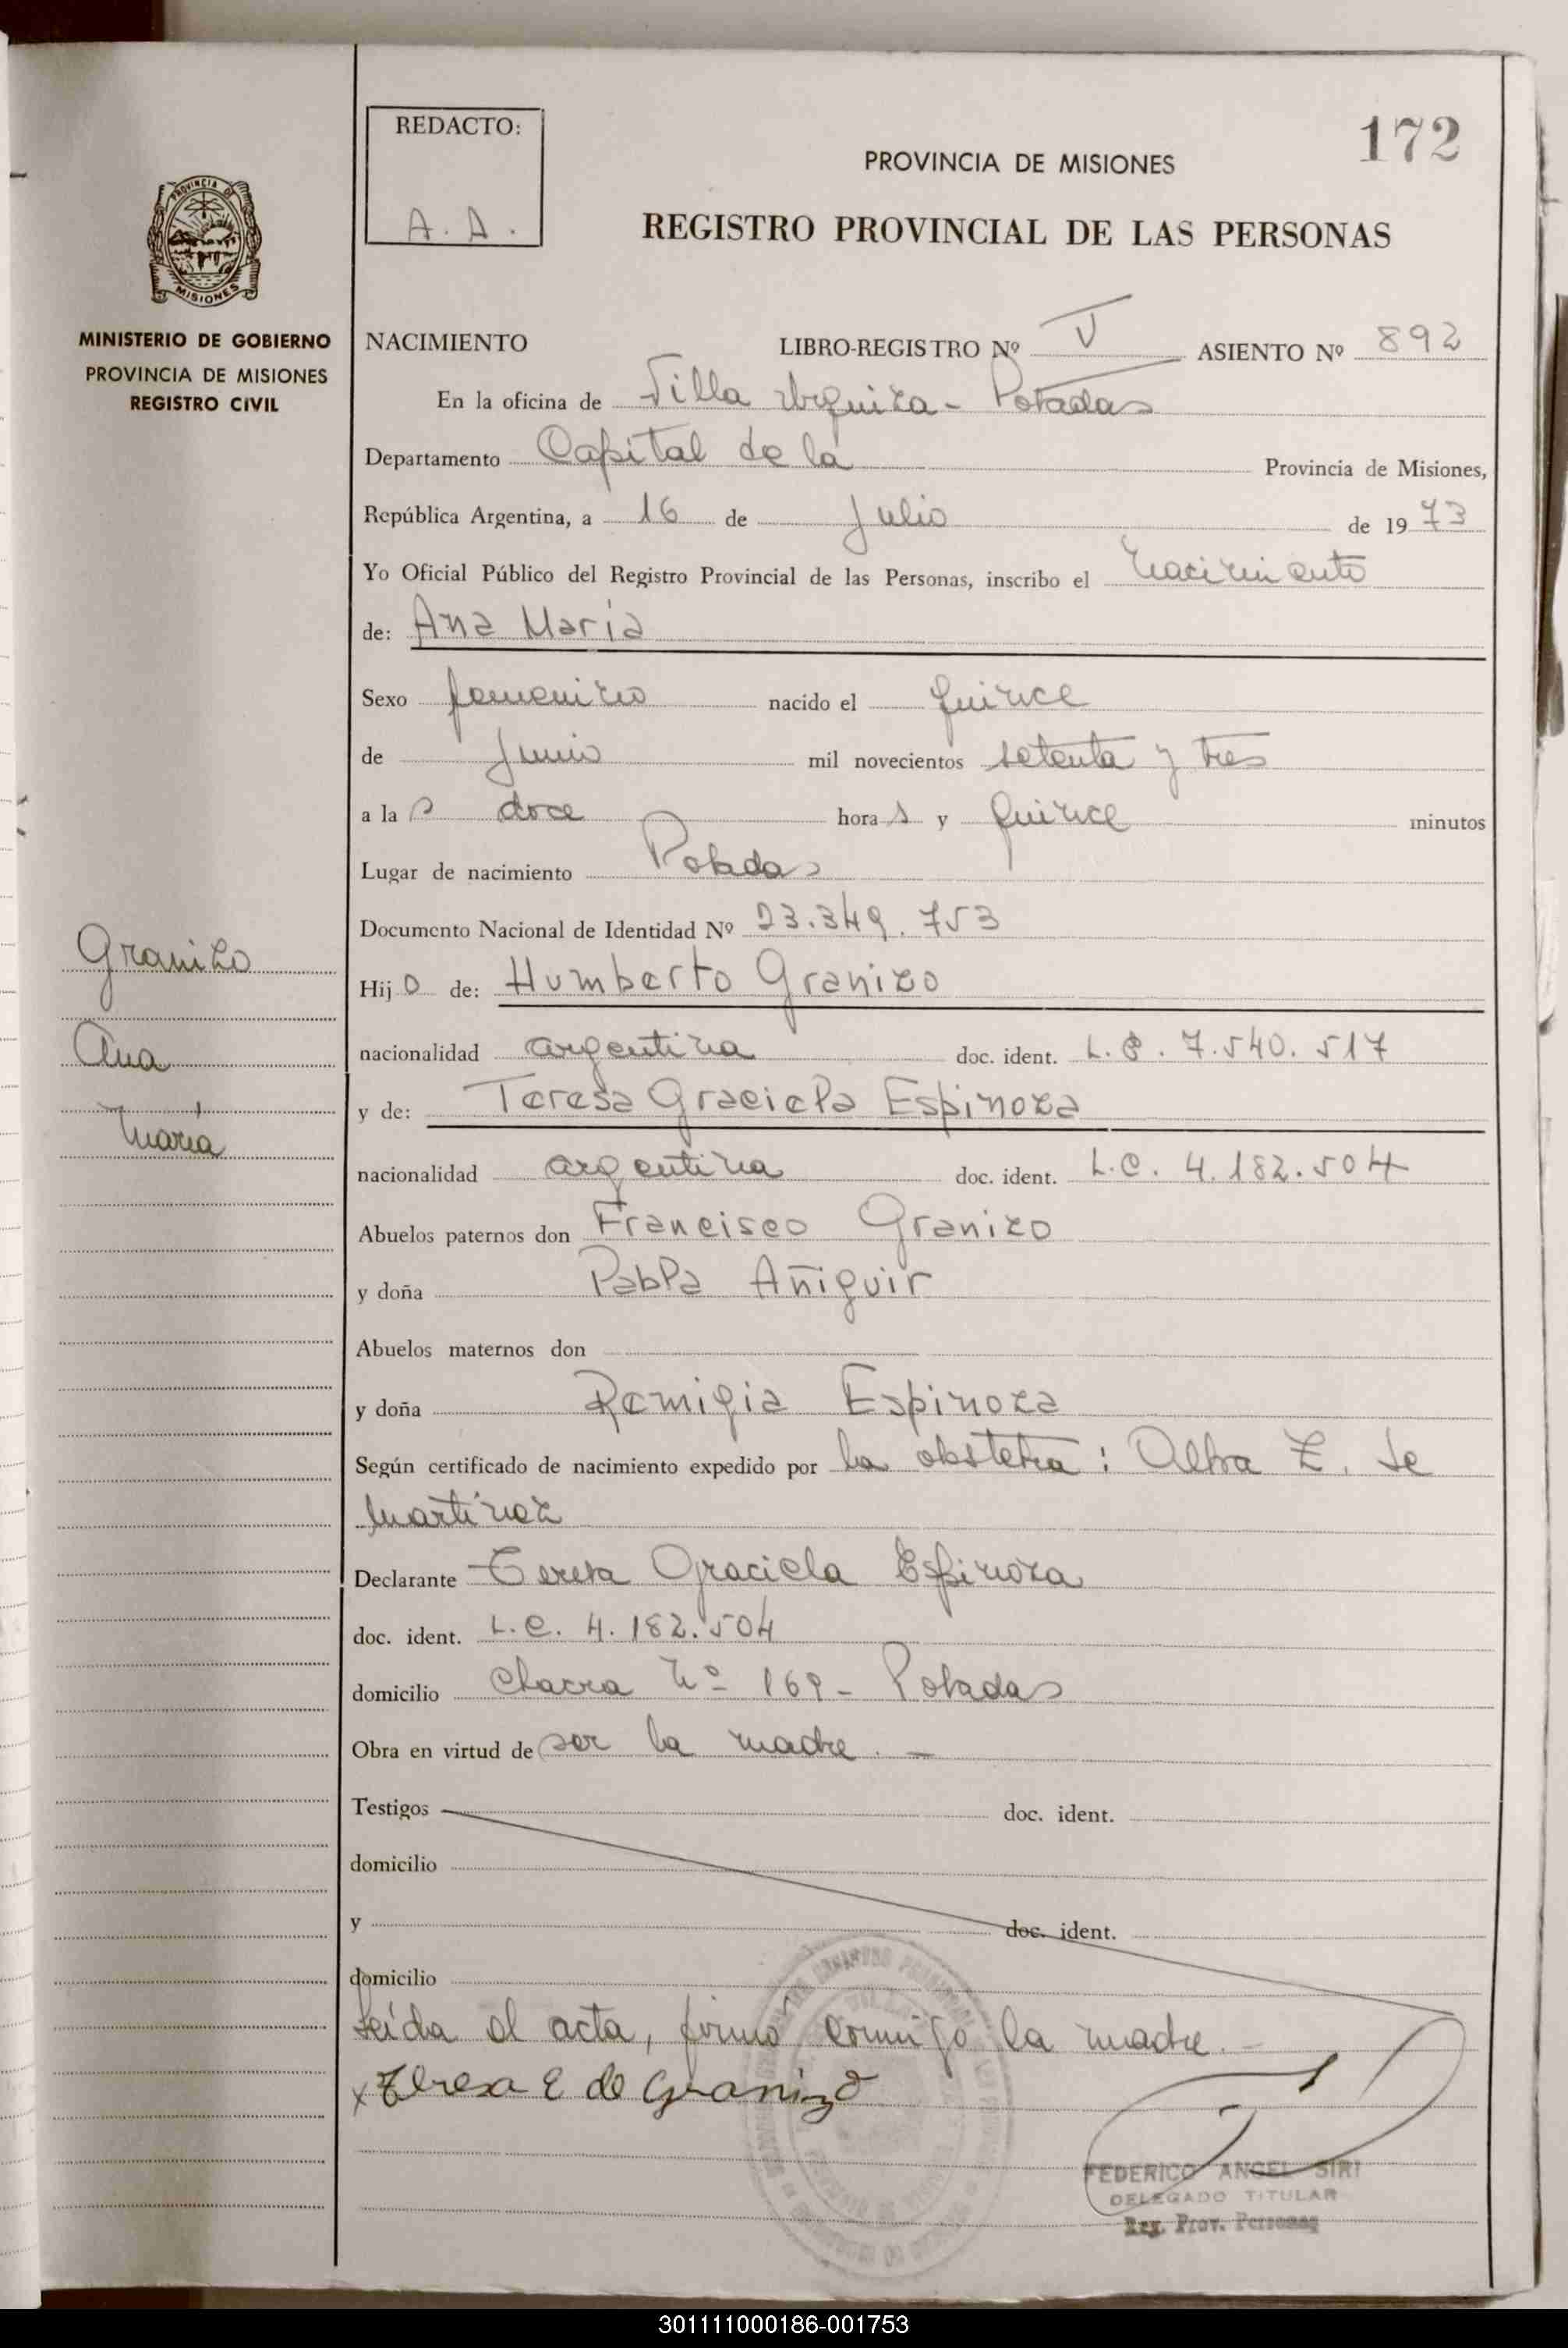 172
REDACTO:
A. A.
PROVINCIA DE MISIONES
REGISTRO PROVINCIAL DE LAS PERSONAS
PROVINCIA DE
MISIONES
MINISTERIO DE GOBIERNO
PROVINCIA DE MISIONES
REGISTRO CIVIL
NACIMIENTO LIBRO-REGISTRO Nº V ASIENTO Nº 892
En la oficina de Villa Urquiza - Posadas
Departamento Capital de la Provincia de Misiones,
República Argentina, a 16 de Julio de 1973
Yo Oficial Público del Registro Provincial de las Personas, inscribo el nacimiento
de: Ana María
Sexo femenino nacido el quince
de Junio mil novecientos setenta y tres
a la s doce hora s y quince minutos
Lugar de nacimiento Posadas
Documento Nacional de Identidad Nº 23.349.753
Granizo
Hij o de: Humberto Granizo
Ana
nacionalidad argentina doc. ident. L.E. 7.540.517
y de: Teresa Graciela Espinoza
María
nacionalidad argentina doc. ident. L.C. 4.182.504
Abuelos paternos don Francisco Granizo
y doña Pabla Añiguir
Abuelos maternos don
y doña Remigia Espinoza
Según certificado de nacimiento expedido por la obstetra: Alba Z. de
Martinez
Declarante Teresa Graciela Espinoza
doc. ident. L.C. 4.182.504
domicilio Chacra Nº 169 - Posadas
Obra en virtud de ser la madre. -
Testigos doc. ident.
domicilio
y doc. ident.
domicilio
Leída el acta, firmó conmigo la madre. -
x Teresa E de Granizo
FEDERICO ANGEL SIRI
DELEGADO TITULAR
Reg. Prov. Personas
301111000186-001753